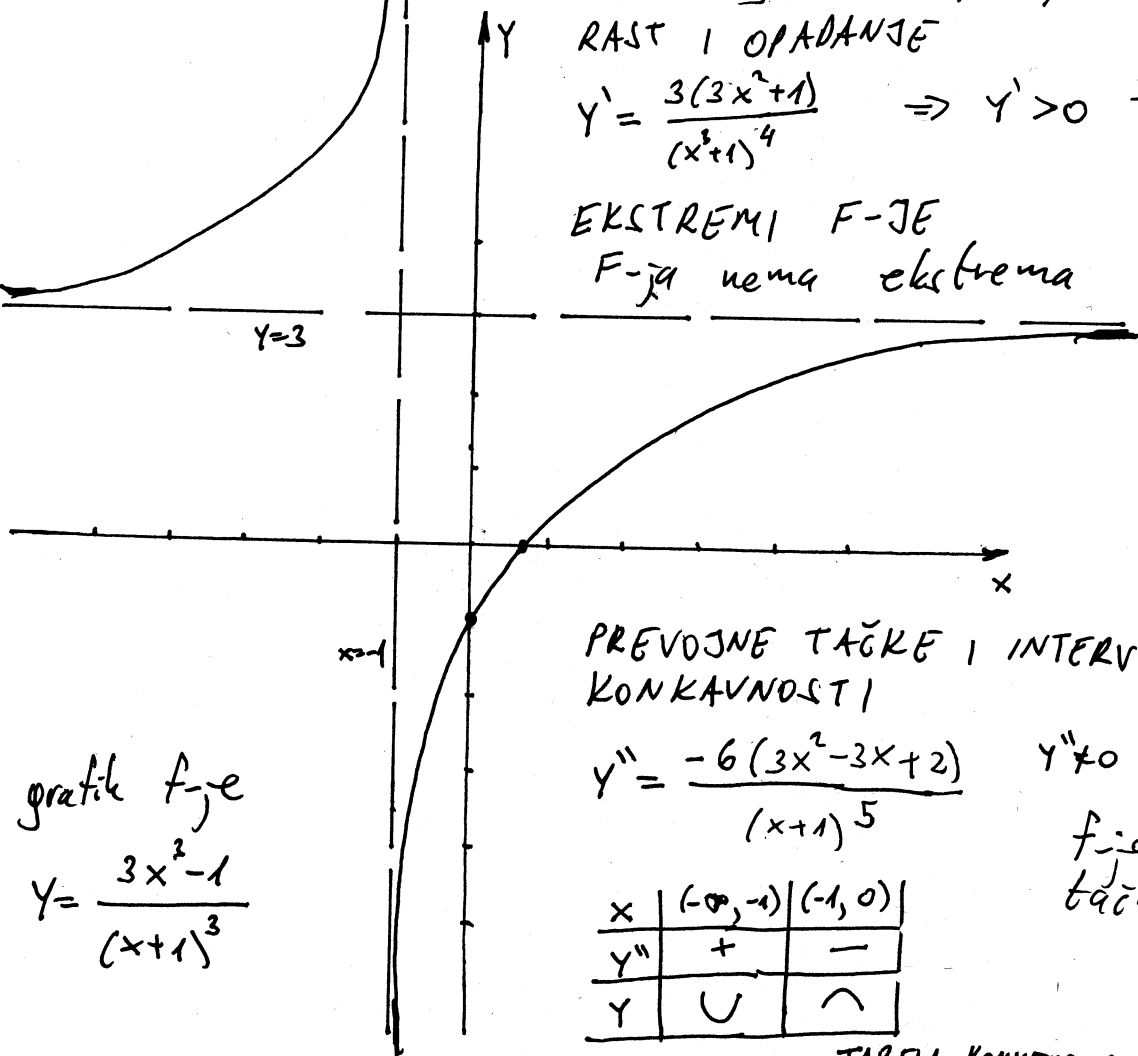 Y
RAST I OPADANJE
Y' = 3(3x²+1) / (x³+1)⁴ ⇒ Y' > 0
EKSTREMI F-JE
F-ja nema ekstrema
Y=3
X
x=-1
PREVOJNE TAČKE I INTERV
KONKAVNOSTI
Y'' = -6(3x²-3x+2) / (x+1)⁵ Y''≠0
grafik f-je
Y = 3x³-1 / (x+1)³
X (-∞,-1) (-1,0)
Y'' + −
Y ∪ ∩